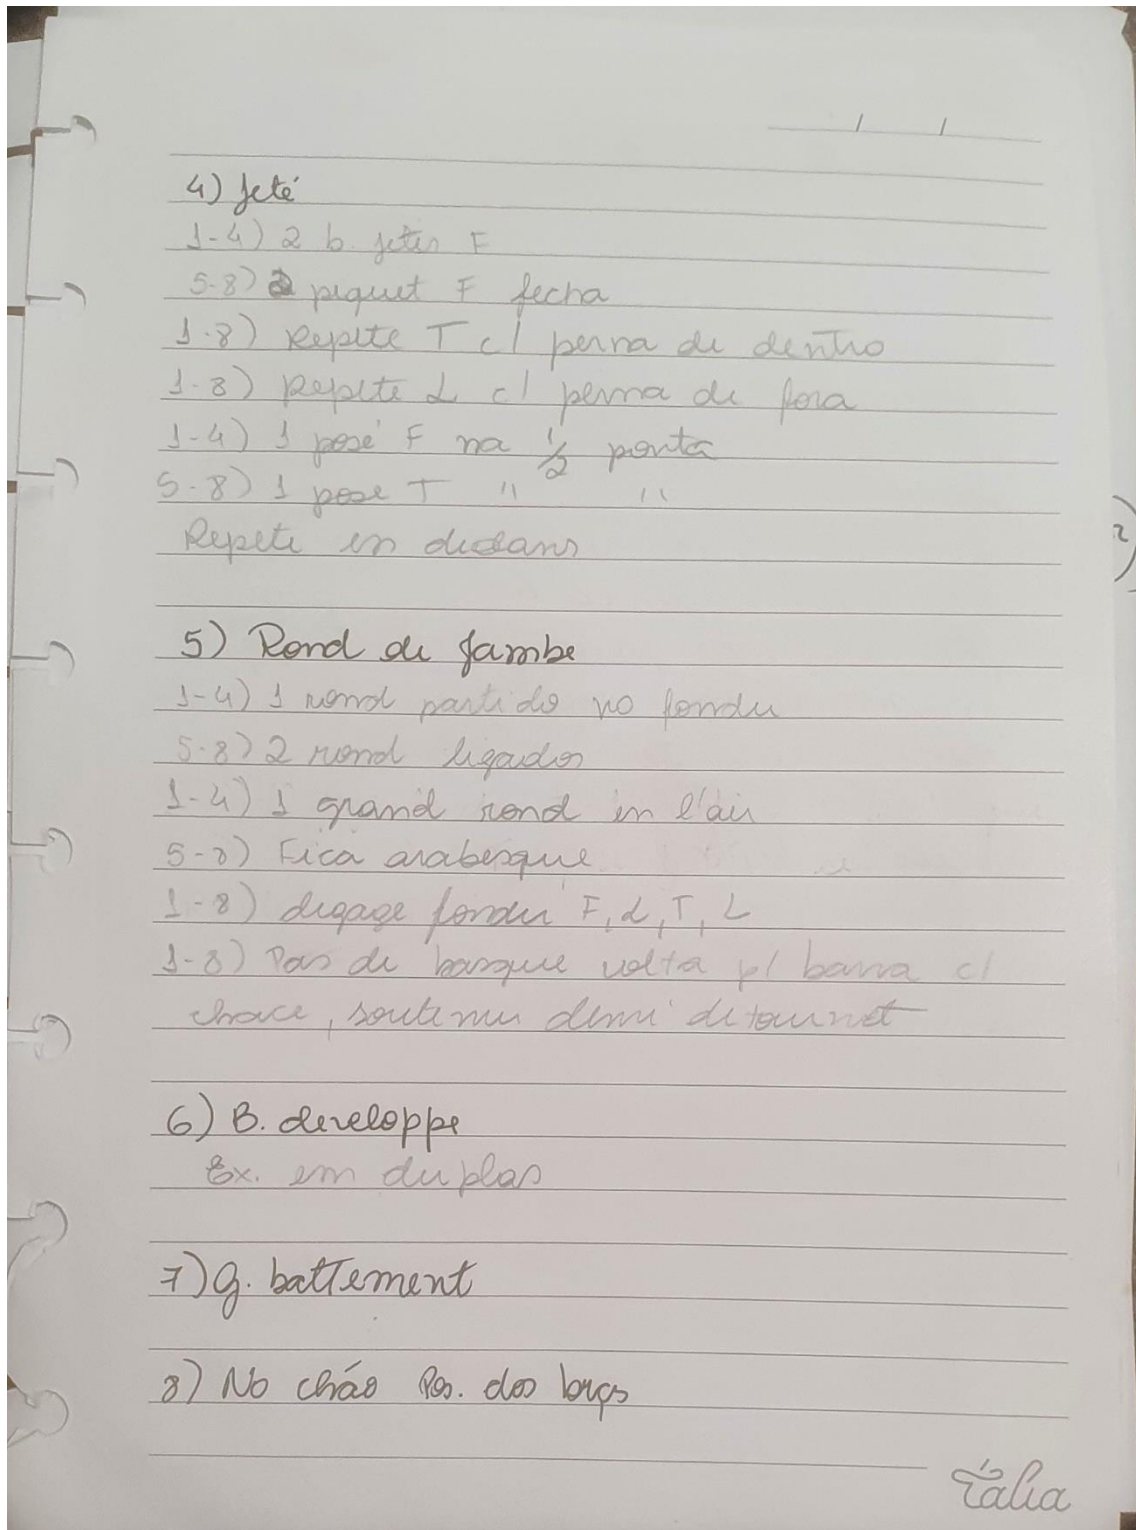 / /
4) Jeté
1-4) 2 b. jetes F
5-8) 2 piquet F fecha
1-8) Repete T c/ perna de dentro
1-8) Repete L c/ perna de fora
1-4) 1 posé F na 1/2 ponta
5-8) 1 pose T " "
Repete en dedans
2)
5) Rond de Jambe
1-4) 1 rond partido no fondu
5-8) 2 rond ligados
1-4) 1 grand rond en l'air
5-8) Fica arabesque
1-8) degage fondu F, L, T, L
1-8) Pas de basque volta p/ barra c/
chace, soutenu demi detournet
6) B. developpe
Ex. em duplas
7) g. battement
8) No chão Pos. dos braços
Tália